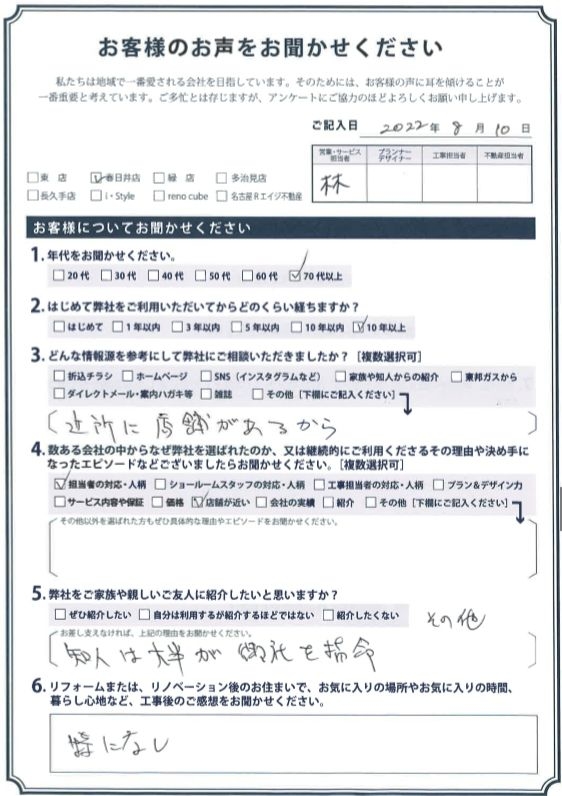 お客様のお声をお聞かせください
私たちは地域で一番愛される会社を目指しています。そのためには、お客様の声に耳を傾けることが
一番重要と考えています。ご多忙とは存じますが、アンケートにご協力のほどよろしくお願い申し上げます。
ご記入日 2022年 8月 10日
営業・サービス担当者 プランナーデザイナー 工事担当者 不動産担当者
林
□東 店 ☑春日井店 □緑 店 □多治見店
□長久手店 □i・Style □reno cube □名古屋Rエイジ不動産
お客様についてお聞かせください
1. 年代をお聞かせください。
□20代 □30代 □40代 □50代 □60代 ☑70代以上
2. はじめて弊社をご利用いただいてからどのくらい経ちますか?
□はじめて □1年以内 □3年以内 □5年以内 □10年以内 ☑10年以上
3. どんな情報源を参考にして弊社にご相談いただきましたか?［複数選択可］
□折込チラシ □ホームページ □SNS（インスタグラムなど） □家族や知人からの紹介 □東邦ガスから
□ダイレクトメール・案内ハガキ等 □雑誌 □その他［下欄にご記入ください］
近所に店舗があるから
4. 数ある会社の中からなぜ弊社を選ばれたのか、又は継続的にご利用くださるその理由や決め手に
なったエピソードなどございましたらお聞かせください。［複数選択可］
☑担当者の対応・人柄 □ショールームスタッフの対応・人柄 □工事担当者の対応・人柄 □プラン＆デザイン力
□サービス内容や保証 □価格 ☑店舗が近い □会社の実績 □紹介 □その他［下欄にご記入ください］
その他以外を選ばれた方もぜひ具体的な理由やエピソードをお聞かせください。
5. 弊社をご家族や親しいご友人に紹介したいと思いますか?
□ぜひ紹介したい □自分は利用するが紹介するほどではない □紹介したくない その他
お差し支えなければ、上記の理由をお聞かせください。
知人は大半が御社を指命
6. リフォームまたは、リノベーション後のお住まいで、お気に入りの場所やお気に入りの時間、
暮らし心地など、工事後のご感想をお聞かせください。
特になし